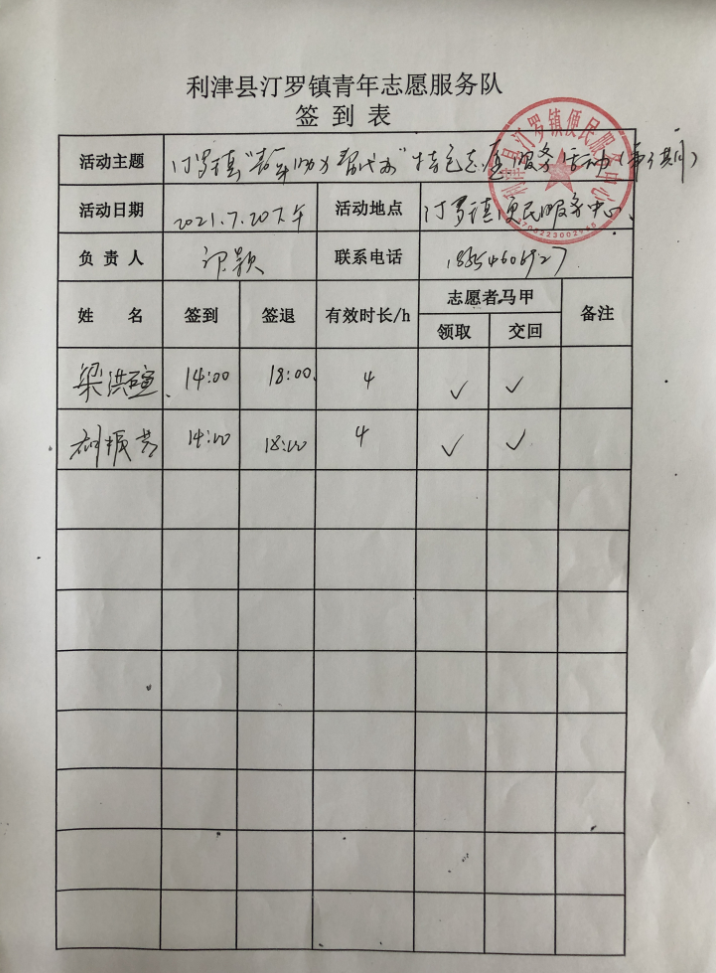 利津县汀罗镇青年志愿服务队
签到表
活动主题 汀罗镇“青年助力 帮代办”特色志愿服务活动(第 期)
活动日期 2021.7.20下午 活动地点 汀罗镇便民服务中心
负责人 许颖 联系电话
姓名 签到 签退 有效时长/h 志愿者马甲 备注
领取 交回
梁洪 14:00 18:00 4 ✓ ✓
振 14:00 18:00 4 ✓ ✓
利津县汀罗镇便民服务中心